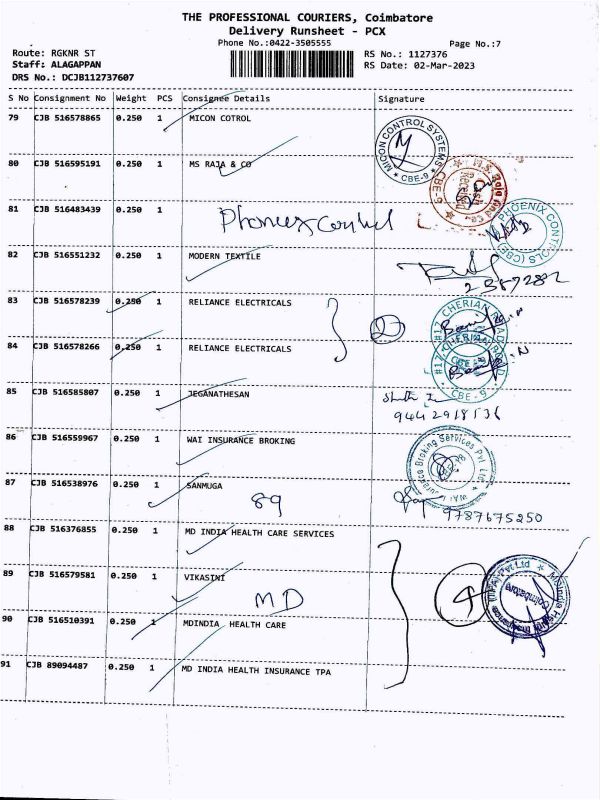 THE PROFESSIONAL COURIERS, Coimbatore
Delivery Runsheet - PCX
Phone No.:0422-3505555
Page No.:7
Route: RGKNR ST
RS No.: 1127376
Staff: ALAGAPPAN
RS Date: 02-Mar-2023
DRS No.: DCJB112737607
S No Consignment No Weight PCS Consignee Details Signature
79 CJB 516578865 0.250 1 MICON COTROL
MICON CONTROL SYSTEMS * CBE-9 *
80 CJB 516595191 0.250 1 MS RAJA & CO
M.S. Raja and co CBE-9
81 CJB 516483439 0.250 1
PHOENIX CONTROLS (CBE)
82 CJB 516551232 0.250 1 MODERN TEXTILE
83 CJB 516578239 0.250 1 RELIANCE ELECTRICALS
2
84 CJB 516578266 0.250 1 RELIANCE ELECTRICALS
CBE - 9
85 CJB 516585807 0.250 1 JEGANATHESAN
9442918136
86 CJB 516559967 0.250 1 WAI INSURANCE BROKING
Broking Services Pvt. Ltd.
87 CJB 516538976 0.250 1 SANMUGA
89
9787675250
88 CJB 516376855 0.250 1 MD INDIA HEALTH CARE SERVICES
89 CJB 516579581 0.250 1 VIKASINI
MD
4
(TPA) Pvt Ltd * MDIndia Health Insurance
Coimbatore
90 CJB 516510391 0.250 1 MDINDIA HEALTH CARE
91 CJB 89094487 0.250 1 MD INDIA HEALTH INSURANCE TPA